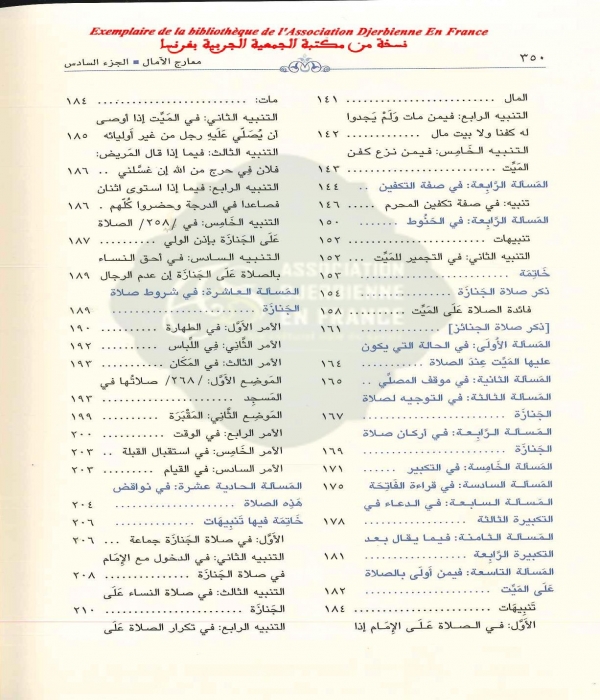 Exemplaire de la bibliothèque de l'Association Djerbienne En France
نسخة من مكتبة الجمعية الجربية بفرنسا
٣٥٠
معارج الآمال ■ الجزء السادس
المال ................ ١٤١
التنبيه الرابع: فيمن مات وَلَمْ يَجدوا
له كفنا ولا بيت مال ................ ١٤٢
التنبيه الخَامِس: فيمن نزع كفن
المَيِّت ................ ١٤٣
المَسألة الرَّابِعة: في صفة التكفين .. ١٤٤
تنبيه: في صفة تكفين المحرم ..... ١٤٦
المَسألة الرَّابِعة: في الحَنُوط ....... ١٥٠
تنبيهات ................ ١٥٢
التنبيه الثاني: في التجمير للمَيِّت ... ١٥٢
خَاتِمَة ................ ١٥٣
ذكر صلاة الجَنازَة ................ ١٥٤
فائدة الصلاة عَلَى المَيِّت ........... ١٥٨
[ذكر صلاة الجنائز] ................ ١٦١
المَسألة الأولَى: في الحالة التي يكون
عليها المَيِّت عِندَ الصلاة ............ ١٦٤
المَسألة الثانية: في موقف المصلِّي .. ١٦٥
المَسألة الثالثة: في التوجيه لصلاة
الجَنازَة ................ ١٦٧
المَسألة الرَّابِعة: في أركان صلاة
الجَنازَة ................ ١٦٩
المَسألة الخَامِسة: في التكبير ...... ١٧١
المَسألة السادسة: في قراءة الفَاتِحَة ١٧٥
المَسألة السابعة: في الدعاء في
التكبيرة الثالثة ................ ١٧٨
المَسألة الثامنة: فيما يقال بعد
التكبيرة الرَّابِعة ................ ١٨١
المَسألة التاسعة: فيمن أولَى بالصلاة
عَلَى المَيِّت ................ ١٨٢
تَنبِيهَات ................ ١٨٤
الأوَّل: في الصلاة عَلَى الإمَام إذا
مات: ................ ١٨٤
التنبيه الثاني: في المَيِّت إذا أوصى
أن يُصَلِّي عَلَيهِ رجل من غير أوليائه ١٨٥
التنبيه الثالث: فيما إذا قال المَريض:
فلان فِي حرج من الله إن غسَّلني .. ١٨٦
التنبيه الرابع: فيما إذا استوى اثنان
فصاعدا في الدرجة وحضروا كُلّهم . ١٨٦
التنبيه الخَامِس: في /٢٥٨/ الصلاة
عَلَى الجَنازَة بإذن الولي ............ ١٨٧
التنبيه السادس: في أحق النساء
بالصلاة عَلَى الجَنازَة إن عدم الرجال ١٨٩
المَسألة العاشرة: في شروط صلاة
الجَنازَة ................ ١٨٩
الأمر الأوَّل: في الطهارة ............ ١٩٠
الأمر الثَّانِي: في اللِّباس ............ ١٩٢
الأمر الثالث: في المَكَان ............ ١٩٣
المَوضِع الأوَّل: /٢٦٨/ صلاتُها في
المَسجِد ................ ١٩٣
المَوضِع الثَّانِي: المَقْبَرَة ............ ١٩٩
الأمر الرابع: في الوقت ............ ٢٠٠
الأمر الخَامِس: في استقبال القبلة .. ٢٠٣
الأمر السادس: في القيام ............ ٢٠٣
المَسألة الحادية عشرة: في نواقض
هَذِه الصلاة ................ ٢٠٤
خَاتِمَة فيها تَنبِيهَات ................ ٢٠٦
الأوَّل: في صلاة الجَنازَة جماعة .... ٢٠٦
التنبيه الثاني: في الدخول مع الإمَام
في صلاة الجَنازَة ................ ٢٠٨
التنبيه الثالث: في صلاة النساء عَلَى
الجَنازَة ................ ٢١٠
التنبيه الرابع: في تكرار الصلاة عَلَى
ASSOCIATION
DJERBIENNE
EN FRANCE